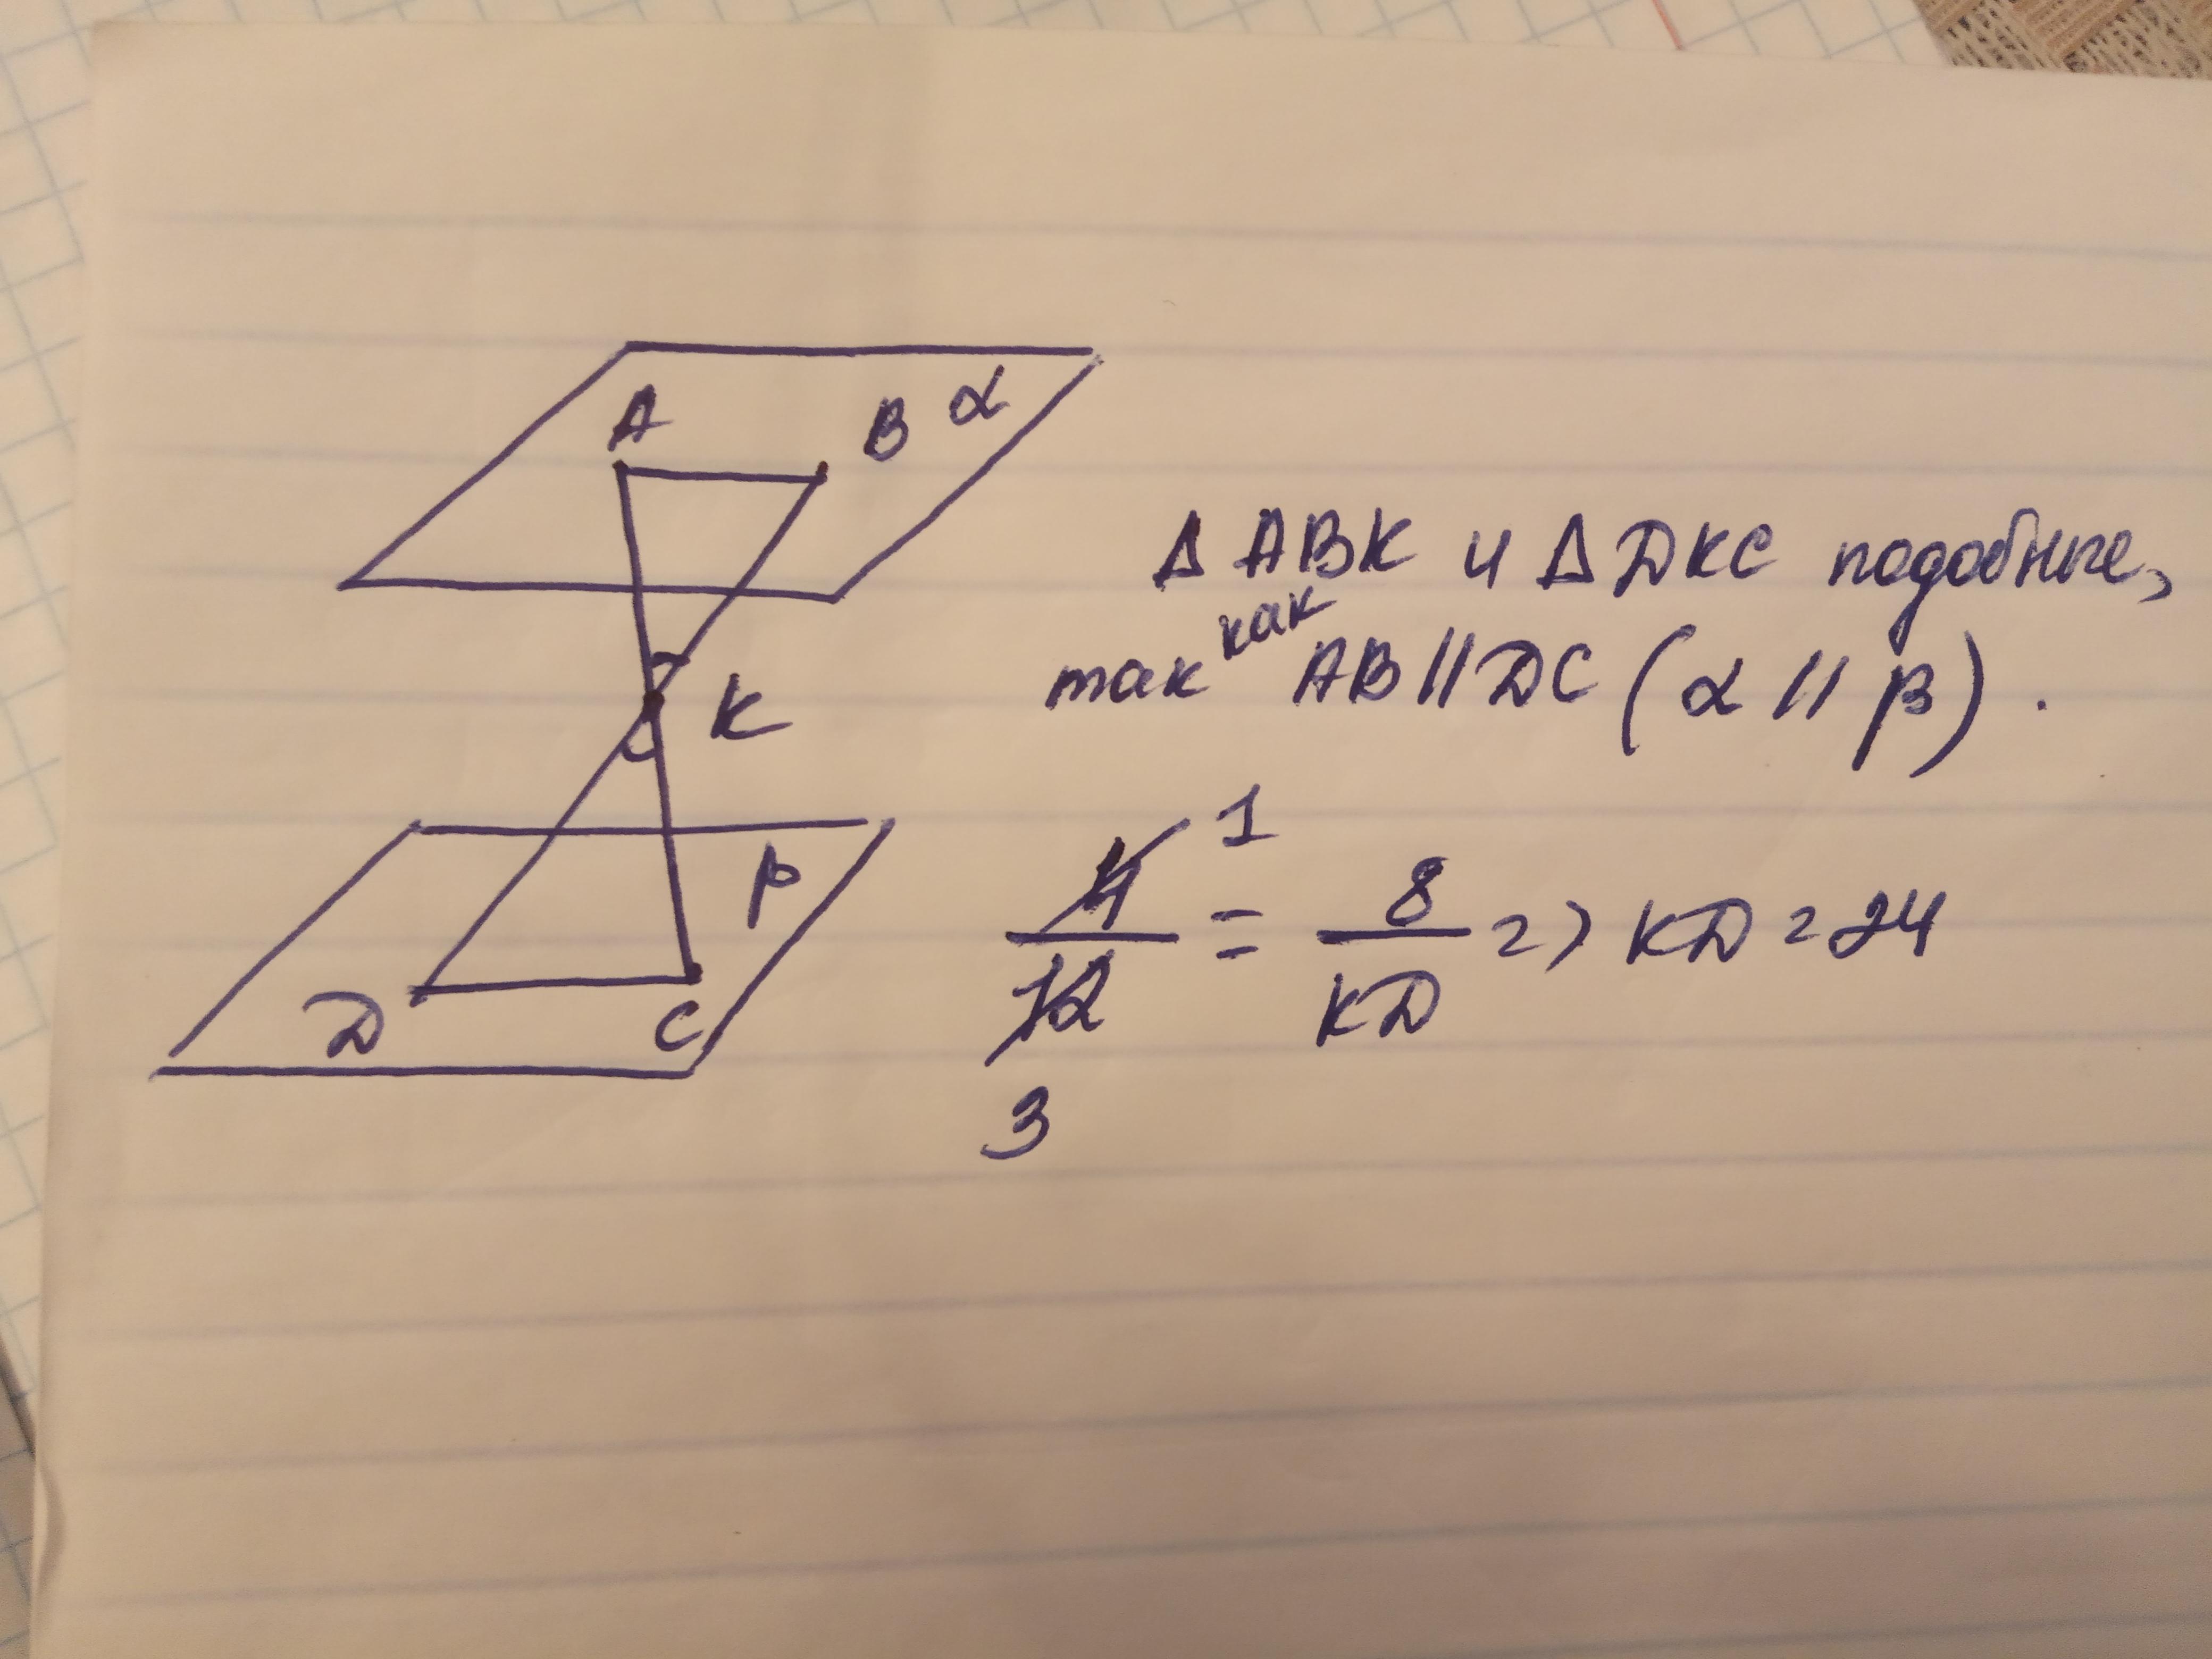 A
B α
K
β
D C
Δ ABK и Δ DKC подобные,
так как AB || DC (α || β).
4/12 = 8/KD => KD = 24
1
3